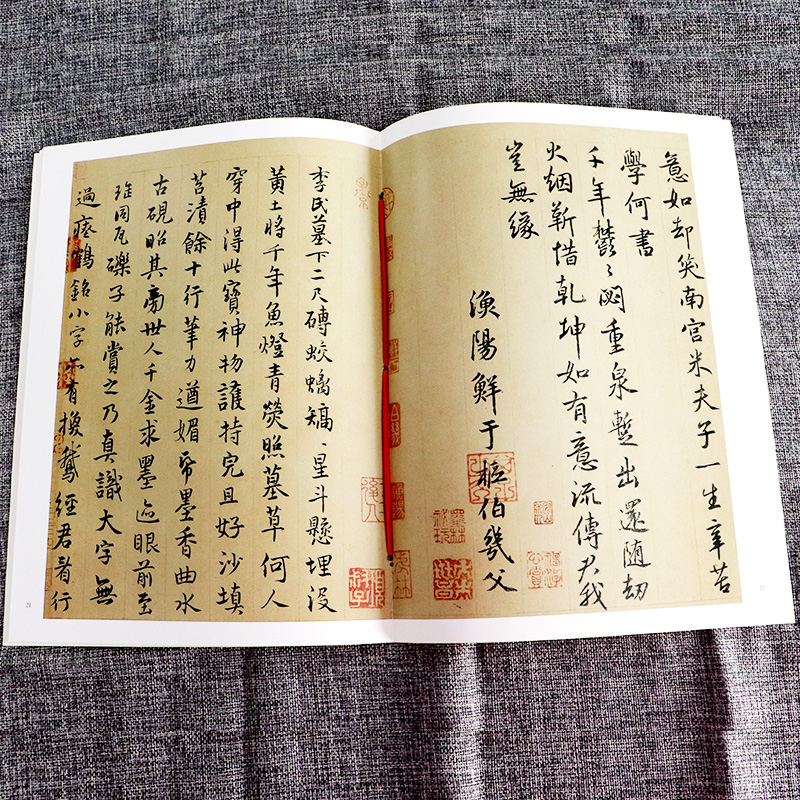 意如却笑南宫米夫子一生辛苦
學何書
千年鬱〻閟重泉暫出還随劫
火烟靳惜乾坤如有意流傳君我
豈無緣
漁陽鮮于樞伯幾父
李氏墓下二尺磚蛟螭矯〻星斗懸埋没
黄土將千年魚燈青熒照墓草何人
穿中得此寶神物護持完且好沙填
苔漬餘十行筆力遒媚帋墨香曲水
古硯昭其旁世人千金求墨迹眼前至
珎同瓦礫子能賞之乃真識大字無
過瘞鶴銘小字亦有換鵝經君看行
21